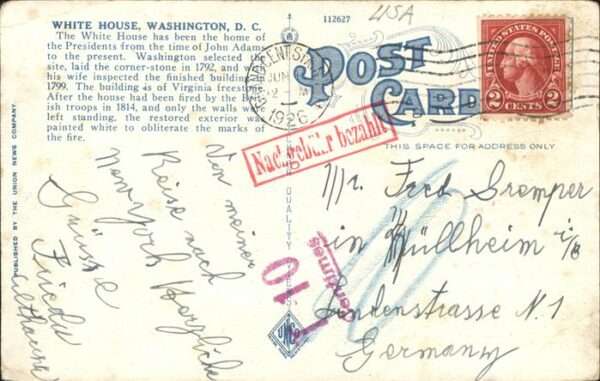 WHITE HOUSE, WASHINGTON, D. C.
The White House has been the home of
the Presidents from the time of John Adams
to the present. Washington selected the
site, laid the corner-stone in 1792, and
his wife inspected the finished building
1799. The building is of Virginia freestone.
After the house had been fired by the
ish troops in 1814, and only the walls were
left standing, the restored exterior was
painted white to obliterate the marks of
the fire.
112627
USA
POST
CARD
THIS SPACE FOR ADDRESS ONLY
UNITED STATES POSTAGE
2 CENTS 2
JUN
1926
Nachgebühr bezahlt
PUBLISHED BY THE UNION NEWS COMPANY
QUALITY
Von meiner
Reise nach
New york Herzliche
Grüsse
Frieda
T 10
centimes
Mr. Fred Gremper
in Müllheim i/B
Lindenstrasse N. 1
Germany